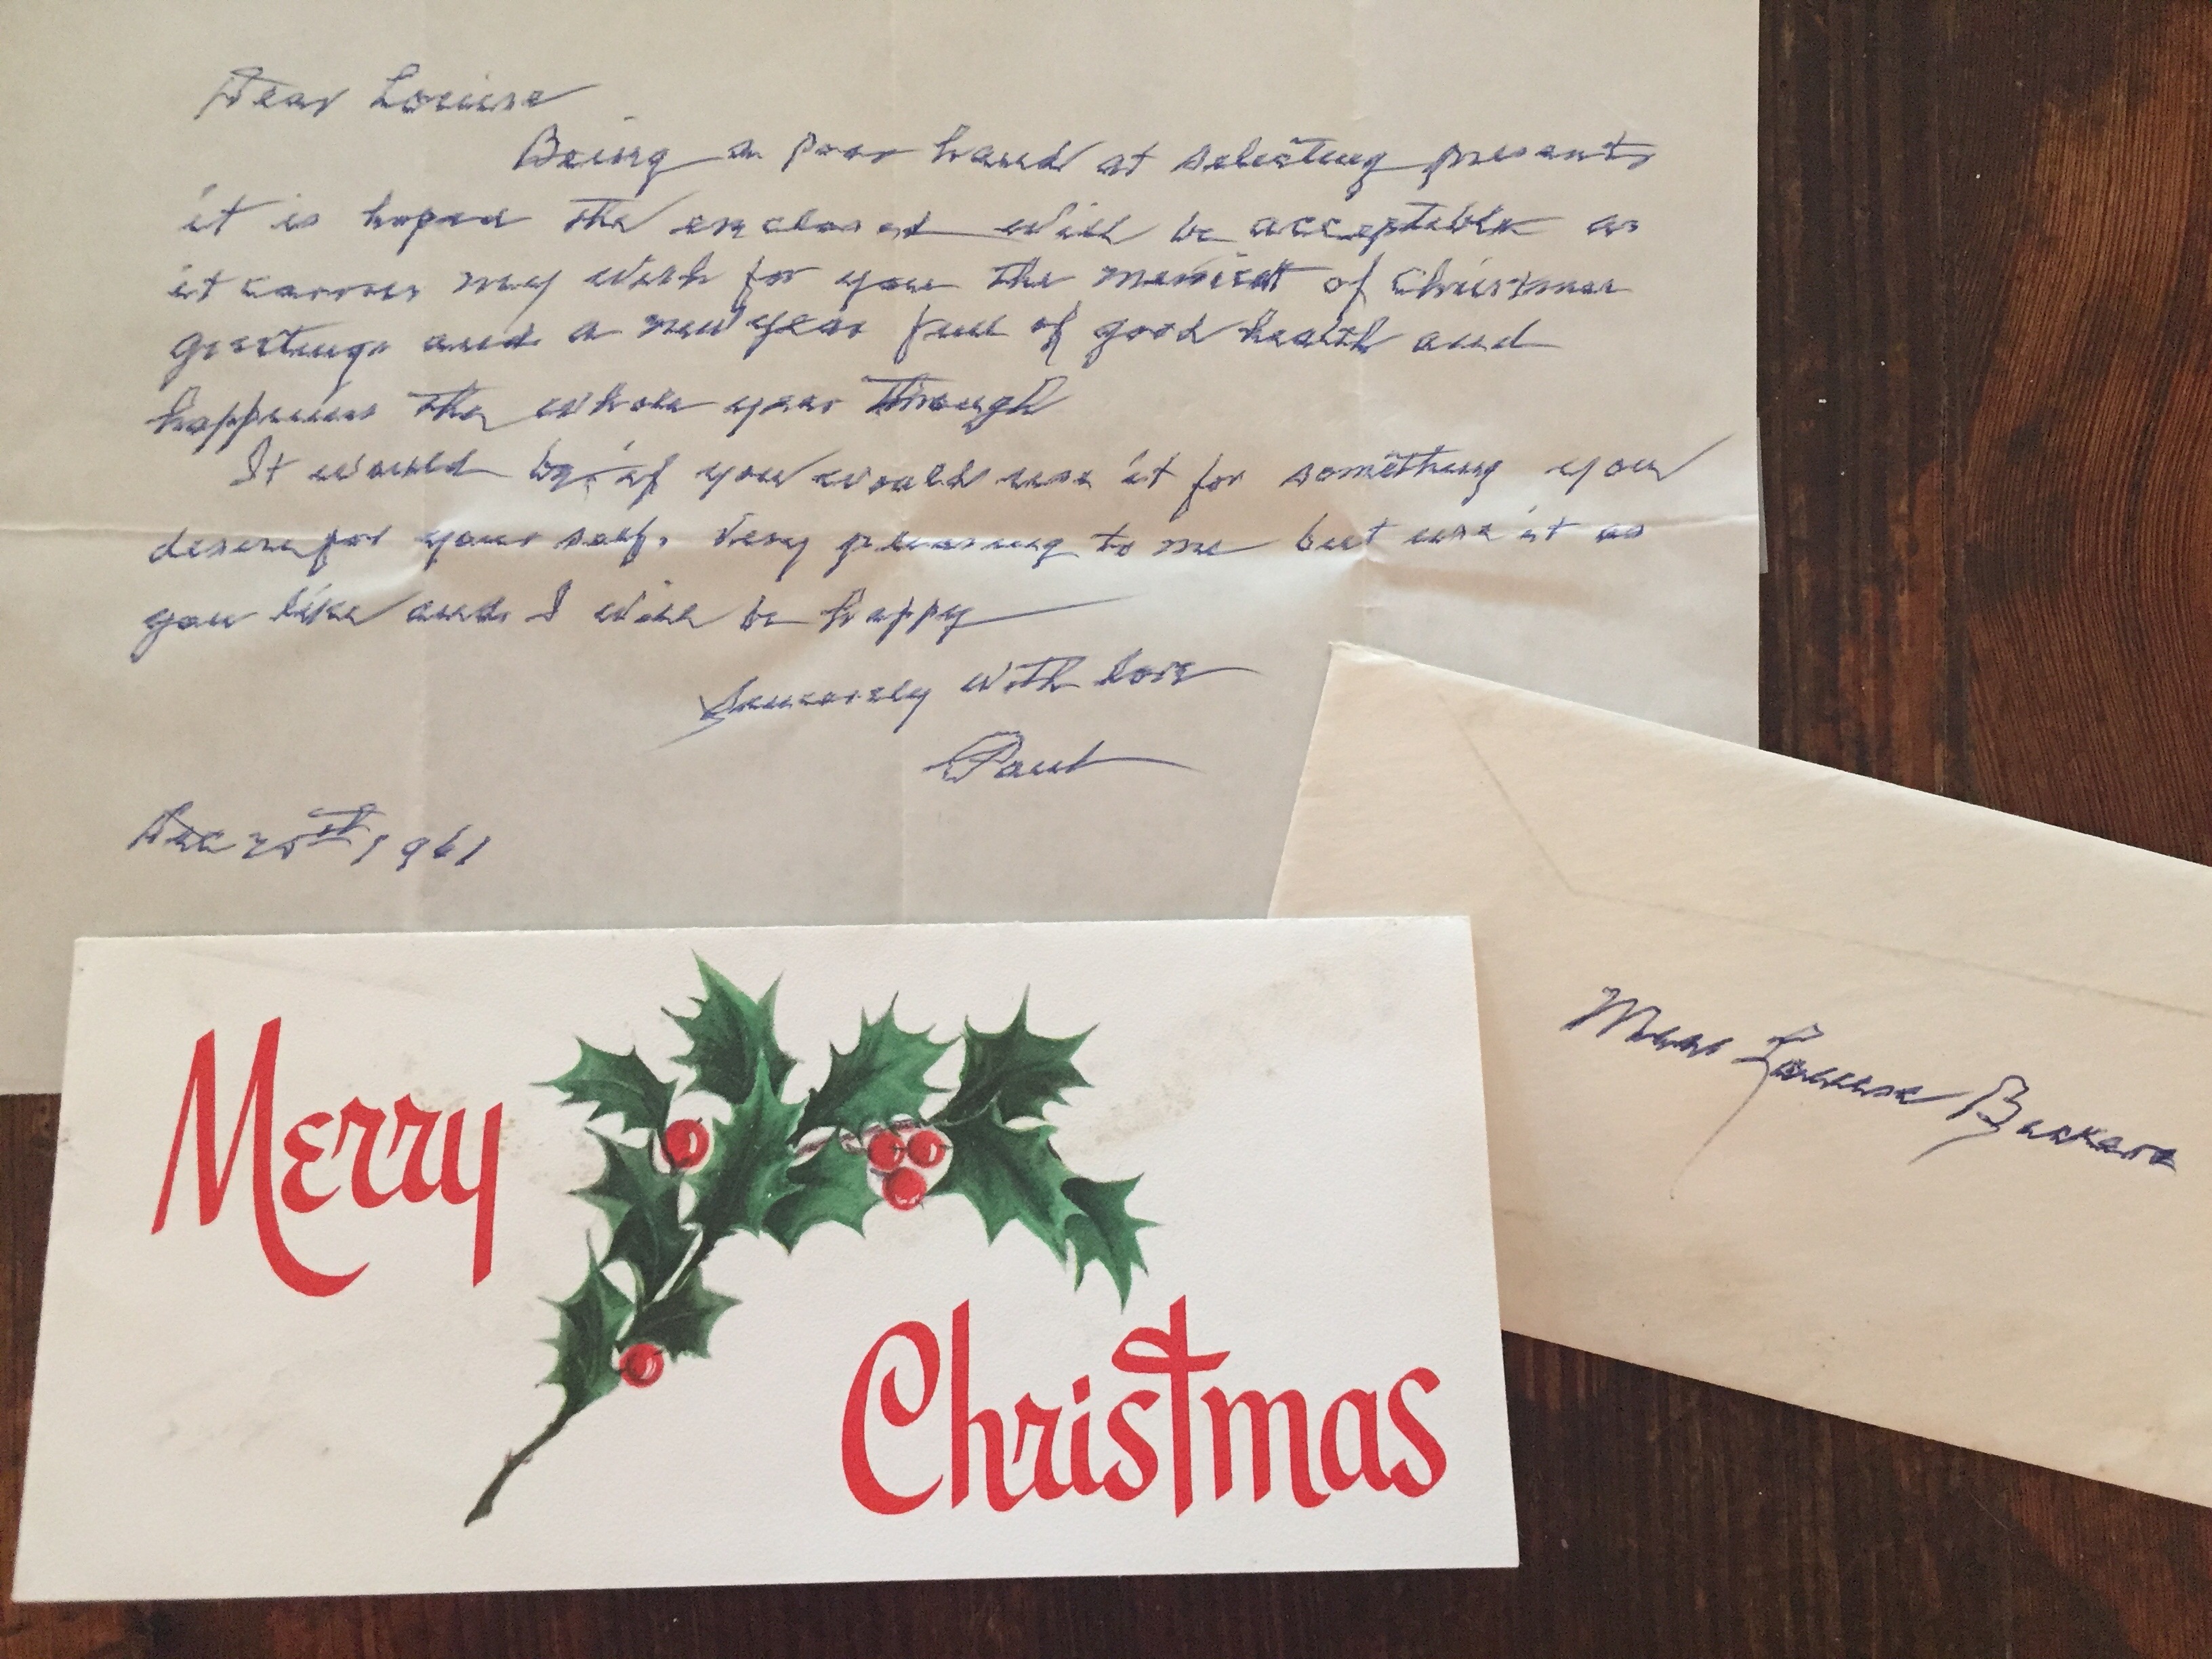 Dear Louise
Being a poor hand at selecting presents
it is hoped the enclosed will be acceptable as
it carries my wish for you the merriest of Christmas
greetings and a new year full of good health and
happiness the whole year through
It would be, if you would use it for something you
desire for your self, very pleasing to me but use it as
you like and I will be happy
Sincerely with love
Paul
Dec 20th 1961
Merry
Christmas
Miss Louise